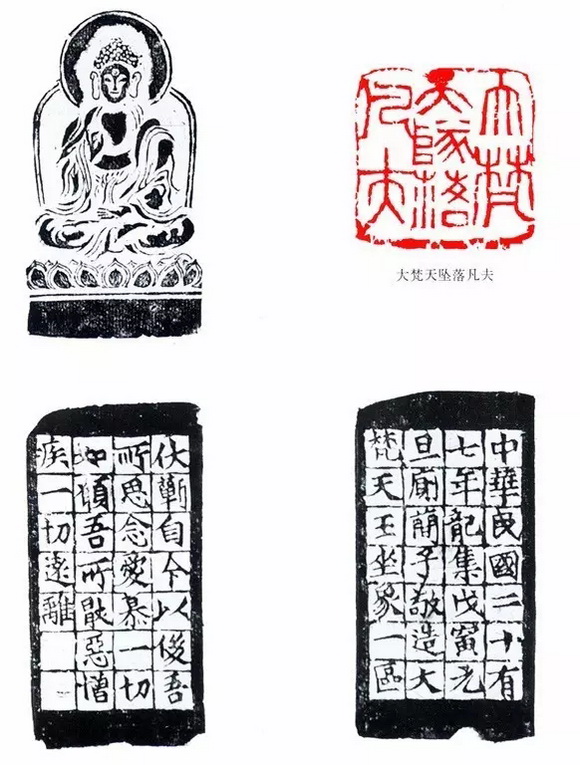 大梵天墜落凡夫
大梵天坠落凡夫
伏蘄自今以後吾
所思念愛慕一切
如願吾所厭惡憎
疾一切遠離
中華民國二十有
七年龍集戊寅元
旦子敬造大
梵天王坐象一區